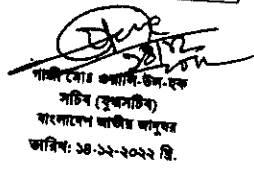 গাজী মোঃ ওয়ালি-উল-হক
সচিব (যুগ্মসচিব)
বাংলাদেশ জাতীয় জাদুঘর
তারিখ: ১৪-১২-২০২২ খ্রি.